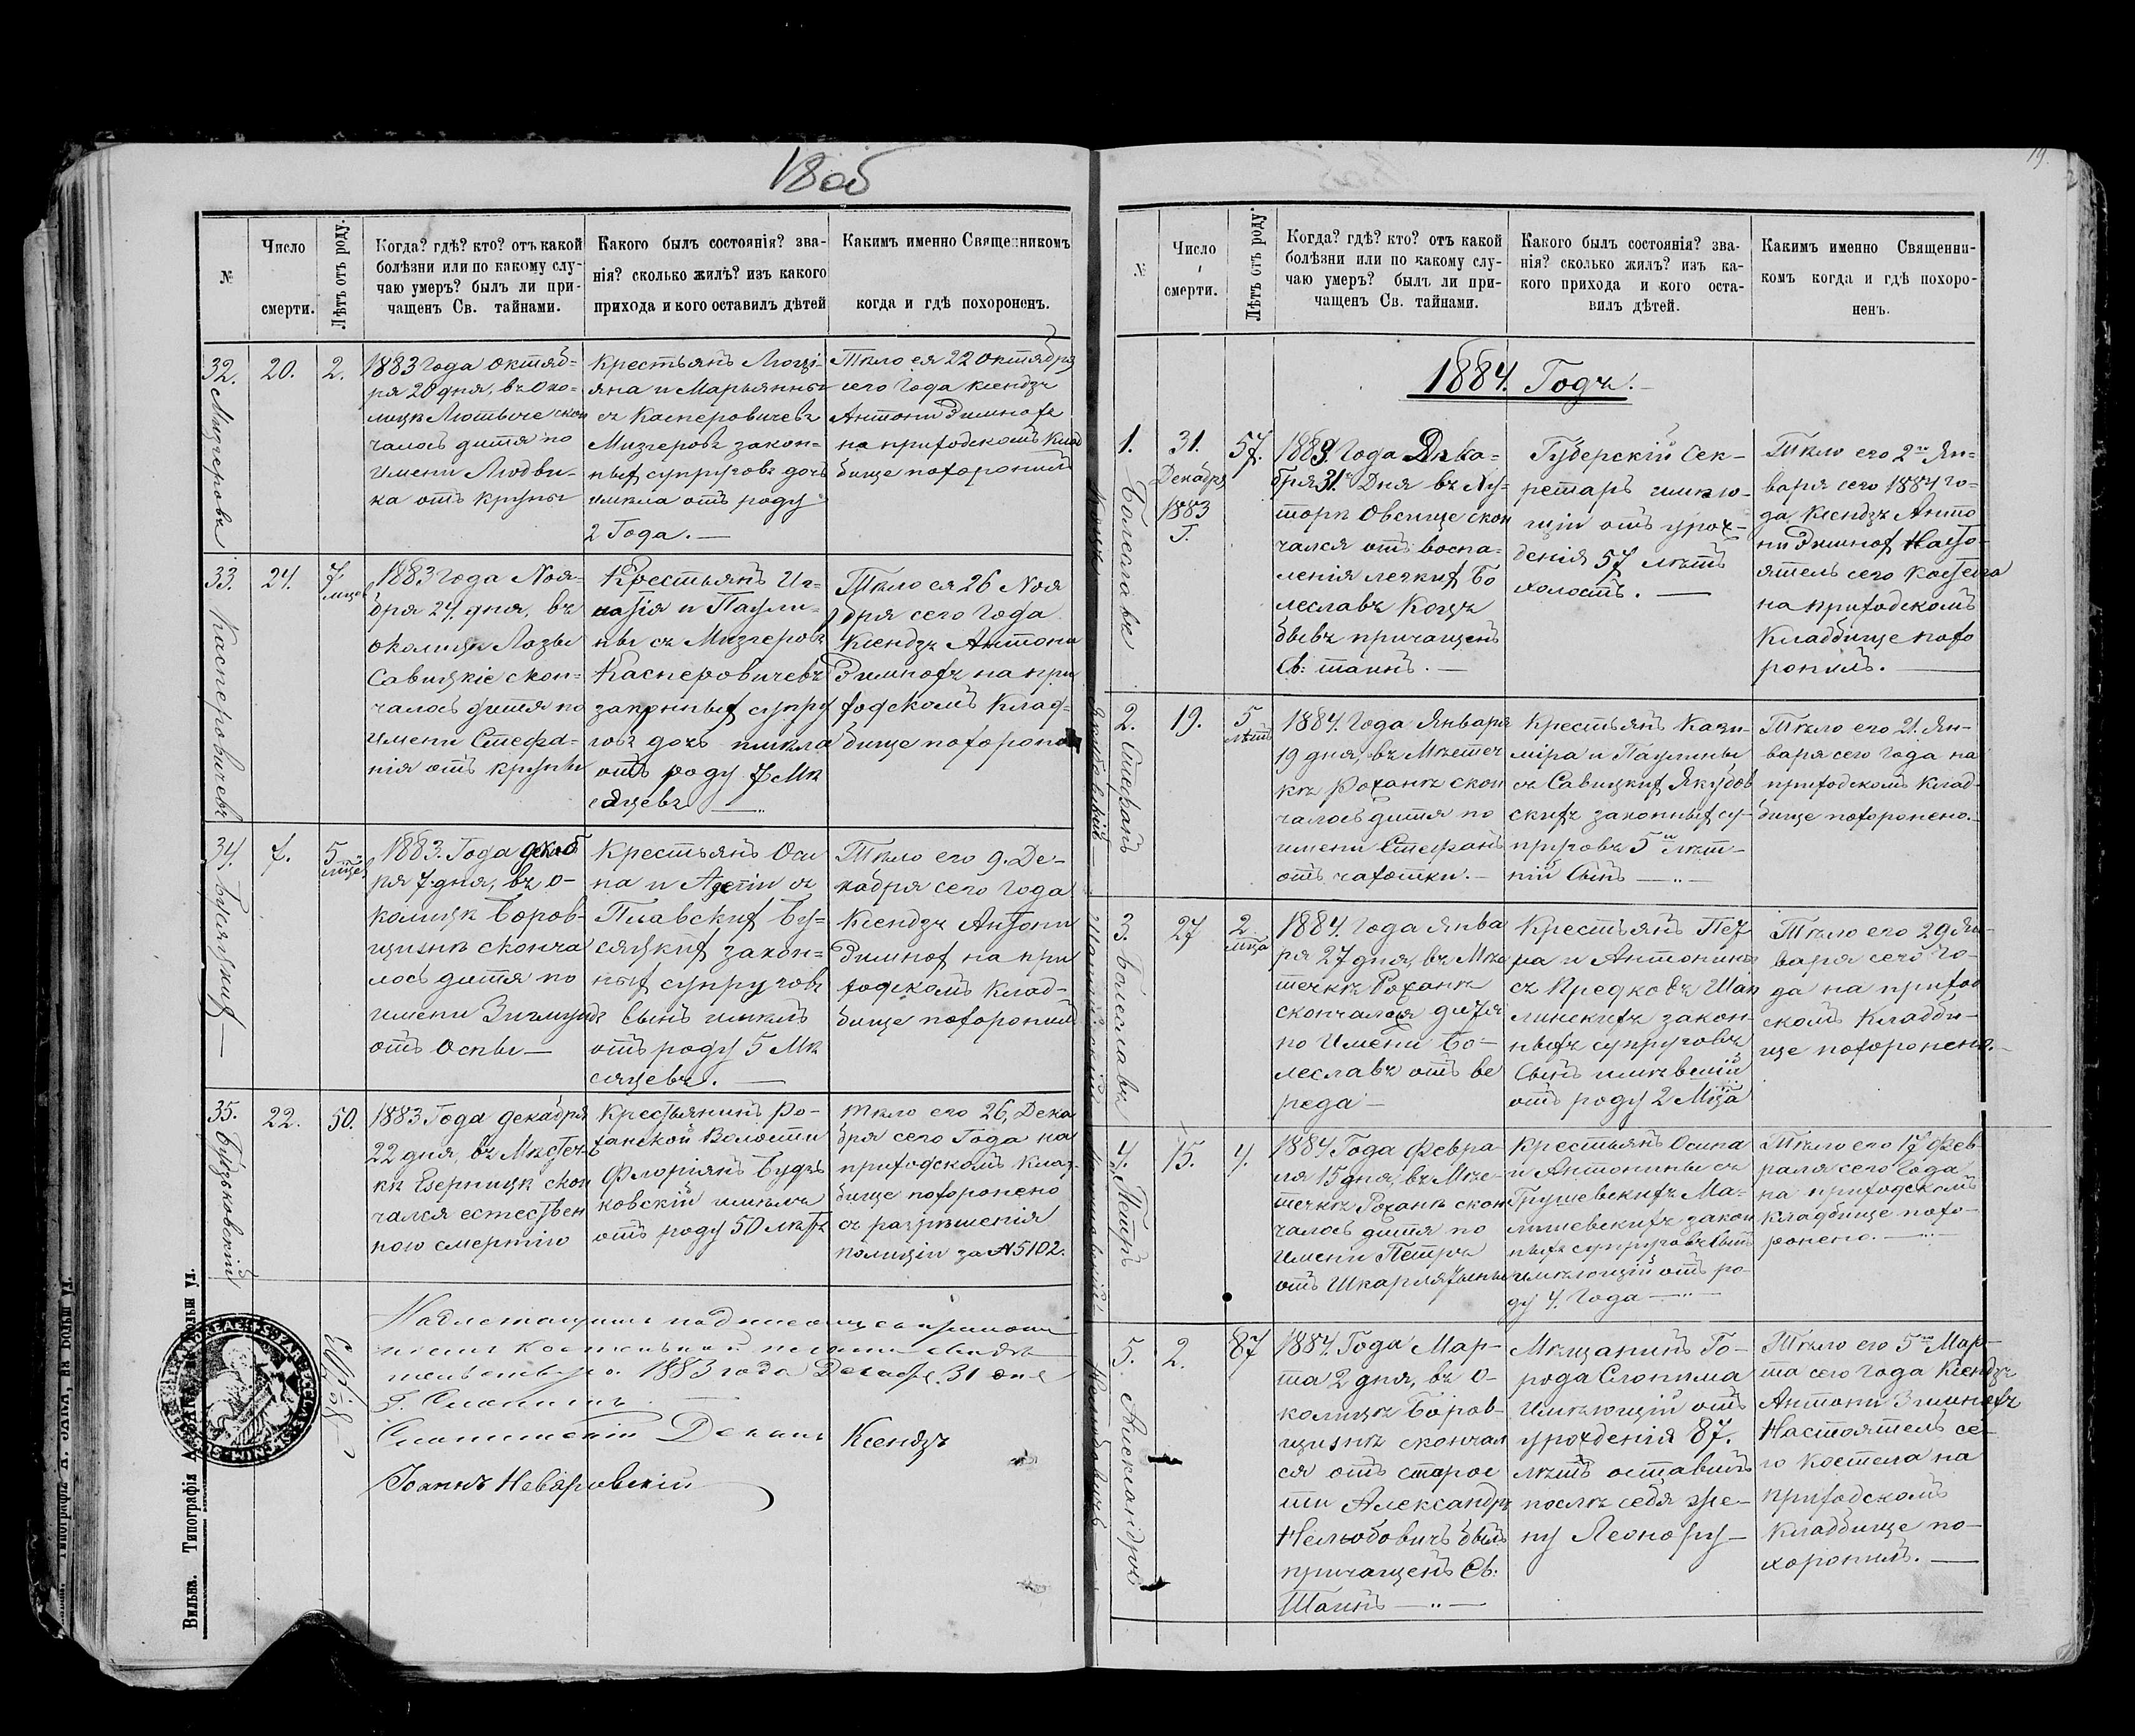 1805
№
Число
смерти.
Лѣтъ отъ роду.
Когда? гдѣ? кто? отъ какой
болѣзни или по какому слу-
чаю умеръ? былъ ли при-
чащенъ Св. тайнами.
Какого былъ состоянія? зва-
нія? сколько жилъ? изъ какого
прихода и кого оставилъ дѣтей
Какимъ именно Священникомъ
когда и гдѣ похороненъ.
32.
Мизгеровъ
20.
2.
1883 Года Октяб-
ря 20 дня, въ Око-
лицѣ Лютыче скон
чалось дитя по
Имени Людви-
ка отъ крупы
Крестьянъ Люці-
яна и Марьянны
съ Касперовичевъ
Мизгеровъ закон-
ныхъ супруговъ дочь
имѣла отъ роду
2 Года.
Тѣло ея 22 Октября
сего Года Ксендзъ
Антони Зимнохъ
на приходскомъ Клад
бище похоронилъ
33.
Касперовичевъ
24.
7
мцев
1883 Года Ноя-
бря 24 дня, въ
околицѣ Лазы
Савицкіе скон-
чалось дитя по
имени Стефа-
нія отъ крупы
Крестьянъ Иг-
натія и Паули-
ны съ Мизгеровъ
Касперовичевъ
законныхъ супру
говъ дочь имѣла
отъ роду 7 Мѣ
сяцевъ
Тѣло ея 26 Ноя
бря сего Года
Ксендзъ Антони
Зимнохъ на при
ходскомъ Клад-
бище похорони
34.
Бусяцкихъ
7.
5
мцев
1883. Года декаб
ря 7 дня, въ о-
колицѣ Боров-
щизнѣ сконча
лось дитя по
имени Зигмундъ
отъ Оспы
Крестьянъ Оси
па и Аделіи съ
Плавскихъ Бу-
сяцкихъ закон-
ныхъ супруговъ
Сынъ имѣлъ
отъ роду 5 Мѣ
сяцевъ.
Тѣло его 9. Де-
кабря сего Года
Ксендзъ Антони
Зимнохъ на при
ходскомъ Клад-
бище похоронилъ
35.
Будзьковскій
22.
50.
1883 Года декабря
22 дня, въ Мѣстеч-
кѣ Езерницѣ скон
чался естествен
ною смертію
Крестьянинъ Ро-
ханской Волости
Флоріянъ Будзь
ковскій имѣлъ
отъ роду 50 лѣтъ
Тѣло его 26, Дека
бря сего Года на
приходскомъ Клад-
бище похоронено
съ разрѣшенія
полиціи за № 5102.
1883 года Декабр. 31 дня
Г. Слонимъ
Слонимскій Деканъ
Ксендзъ
Іоаннъ Неваровскій
Вильна. Типографія
19.
№
Число
смерти.
Лѣтъ отъ роду.
Когда? гдѣ? кто? отъ какой
болѣзни или по какому слу-
чаю умеръ? былъ ли при-
чащенъ Св. тайнами.
Какого былъ состоянія? зва-
нія? сколько жилъ? изъ ка-
кого прихода и кого оста-
вилъ дѣтей.
Какимъ именно Священни-
комъ когда и гдѣ похоро-
ненъ.
1884. Годъ.
1.
Болеславъ
Коцъ
31.
Декабря
1883
Г.
57.
1883. Года Дека-
бря 31. Дня въ Ху-
торѣ Овсище скон
чался отъ воспа-
ленія легкихъ Бо
леславъ Коцъ
бывъ причащенъ
Св: таинъ.
Губерскій Сек-
ретарь имѣю-
щій отъ урож-
денія 57 лѣтъ
холостъ.
Тѣло его 2го Ян-
варя сего 1884 го-
да Ксендзъ Анто
ни Зимнохъ Насто-
ятель сего Костела
на приходскомъ
Кладбище похо
ронилъ.
2.
Стефанъ
Якубовскій
19.
5
лѣтъ
1884. Года Января
19 дня, въ Мѣстеч
кѣ Роханѣ скон
чалось дитя по
имени Стефанъ
отъ чахотки.
Крестьянъ Кази-
міра и Паулины
съ Савицкихъ Якубов
скихъ законныхъ су-
пруговъ 5ти лѣт-
ній Сынъ
Тѣло его 21. Ян-
варя сего Года на
приходскомъ Клад-
бище похоронено.
3.
Болеславъ
27
2
мца
1884. Года Янва
ря 27 дня, въ Мѣс
течкѣ Роханѣ
скончался дитя
по Имени Бо-
леславъ отъ ве
реда
Крестьянъ Пет
ра и Антонины
съ Предковъ Шап
линскихъ закон-
ныхъ супруговъ
Сынъ имѣвшій
отъ роду 2 Мца
Тѣло его 29 Ян-
варя сего Го-
да на приход
скомъ Кладби-
ще похоронено.
4.
Петръ
15.
4.
1884 Года Февра-
ля 15 дня, въ Мѣс-
течкѣ Роханѣ скон
чалось дитя по
Имени Петръ
отъ Шкарлятыны
Крестьянъ Осипа
и Антонины съ
Грушевскихъ Ма-
лишевскихъ закон
ныхъ супруговъ Сынъ
имѣющій отъ ро-
ду 4. Года
Тѣло его 17 Фев-
раля сего Года
на приходскомъ
Кладбище похо-
ронено.
5.
Александръ
Нелюбовичъ
2.
87
1884. Года Мар-
та 2 дня, въ о-
колицѣ Боров-
щизнѣ скончал
ся отъ старос
ти Александръ
Нелюбовичъ былъ
причащенъ Св:
Таинъ
Мѣщанинъ Го-
рода Слонима
Имѣющій отъ
урожденія 87.
лѣтъ оставилъ
послѣ себя же-
ну Леонору
Тѣло его 5го Мар-
та сего Года Ксендзъ
Антони Зимнохъ
Настоятель се-
го Костела на
приходскомъ
Кладбище по-
хоронилъ.